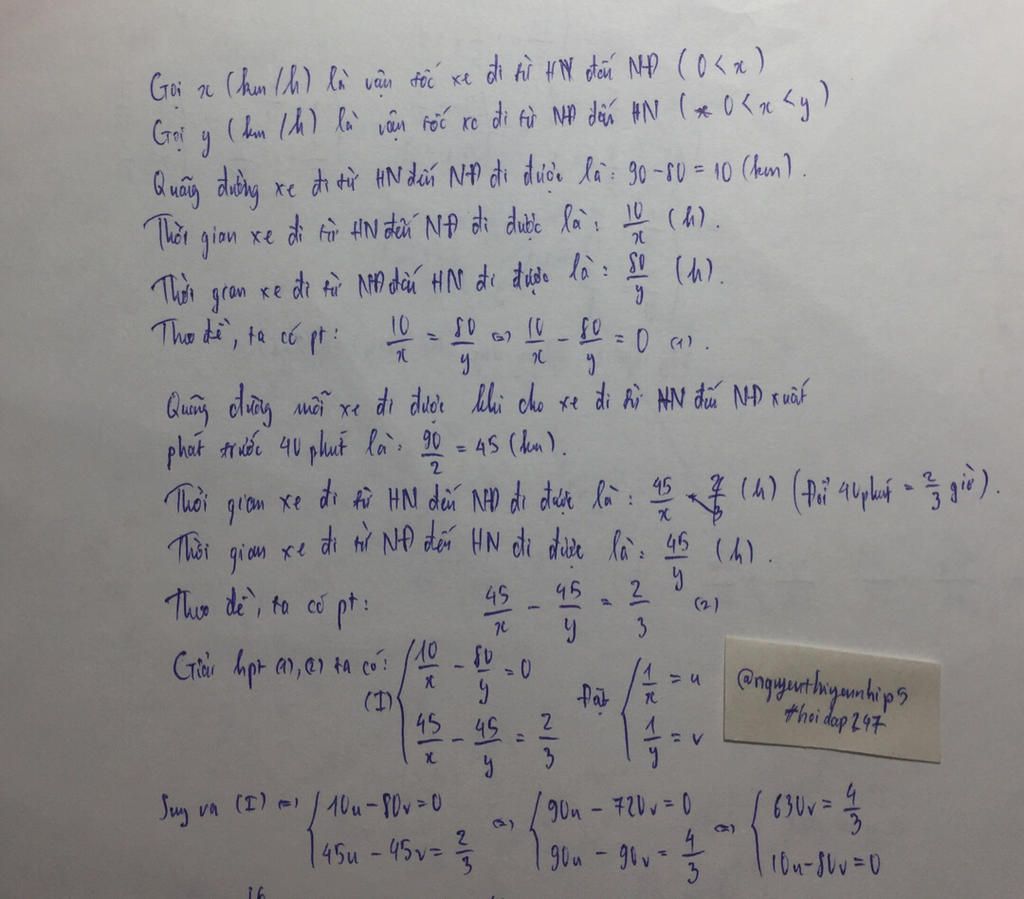 Gọi x (km/h) là vận tốc xe đi từ HN đến NĐ (0 < x)
Gọi y (km/h) là vận tốc xe đi từ NĐ đến HN (0 < x < y)
Quãng đường xe đi từ HN đến NĐ đi được là: 90 - 80 = 10 (km).
Thời gian xe đi từ HN đến NĐ đi được là: 10/x (h).
Thời gian xe đi từ NĐ đến HN đi được là: 80/y (h).
Theo đề, ta có pt: 10/x = 80/y <=> 10/x - 80/y = 0 (1).
Quãng đường mỗi xe đi được khi cho xe đi từ HN đến NĐ xuất
phát trước 40 phút là: 90/2 = 45 (km).
Thời gian xe đi từ HN đến NĐ đi được là: 45/x (h) (Đổi 40 phút = 2/3 giờ).
Thời gian xe đi từ NĐ đến HN đi được là: 45/y (h).
Theo đề, ta có pt: 45/x - 45/y = 2/3 (2)
Giải hpt (1), (2) ta có: (I) { 10/x - 80/y = 0
45/x - 45/y = 2/3
Đặt { 1/x = u
1/y = v
@nguyenthiyennhip5
#hoidap247
Suy ra (I) <=> { 10u - 80v = 0
45u - 45v = 2/3
<=> { 90u - 720v = 0
90u - 90v = 4/3
<=> { 630v = 4/3
10u - 80v = 0